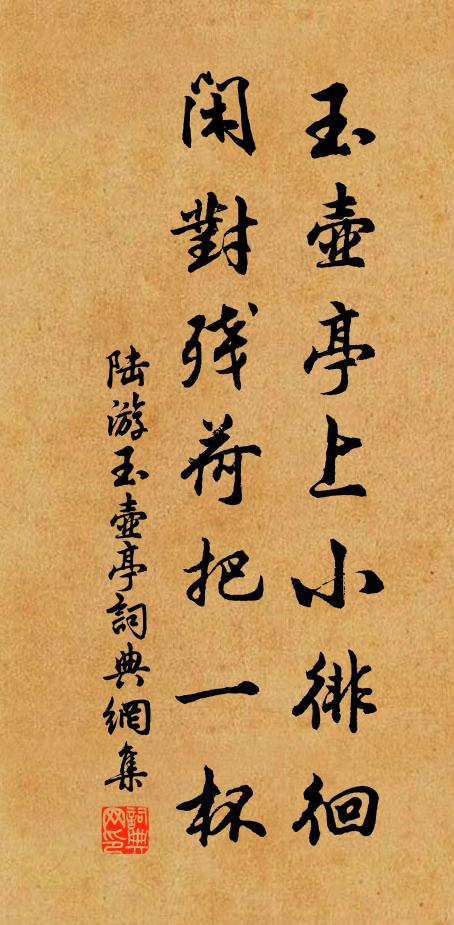 玉壺亭上小徘徊
闲對残荷把一杯
陆游玉壺亭詞典網集
詞典网印